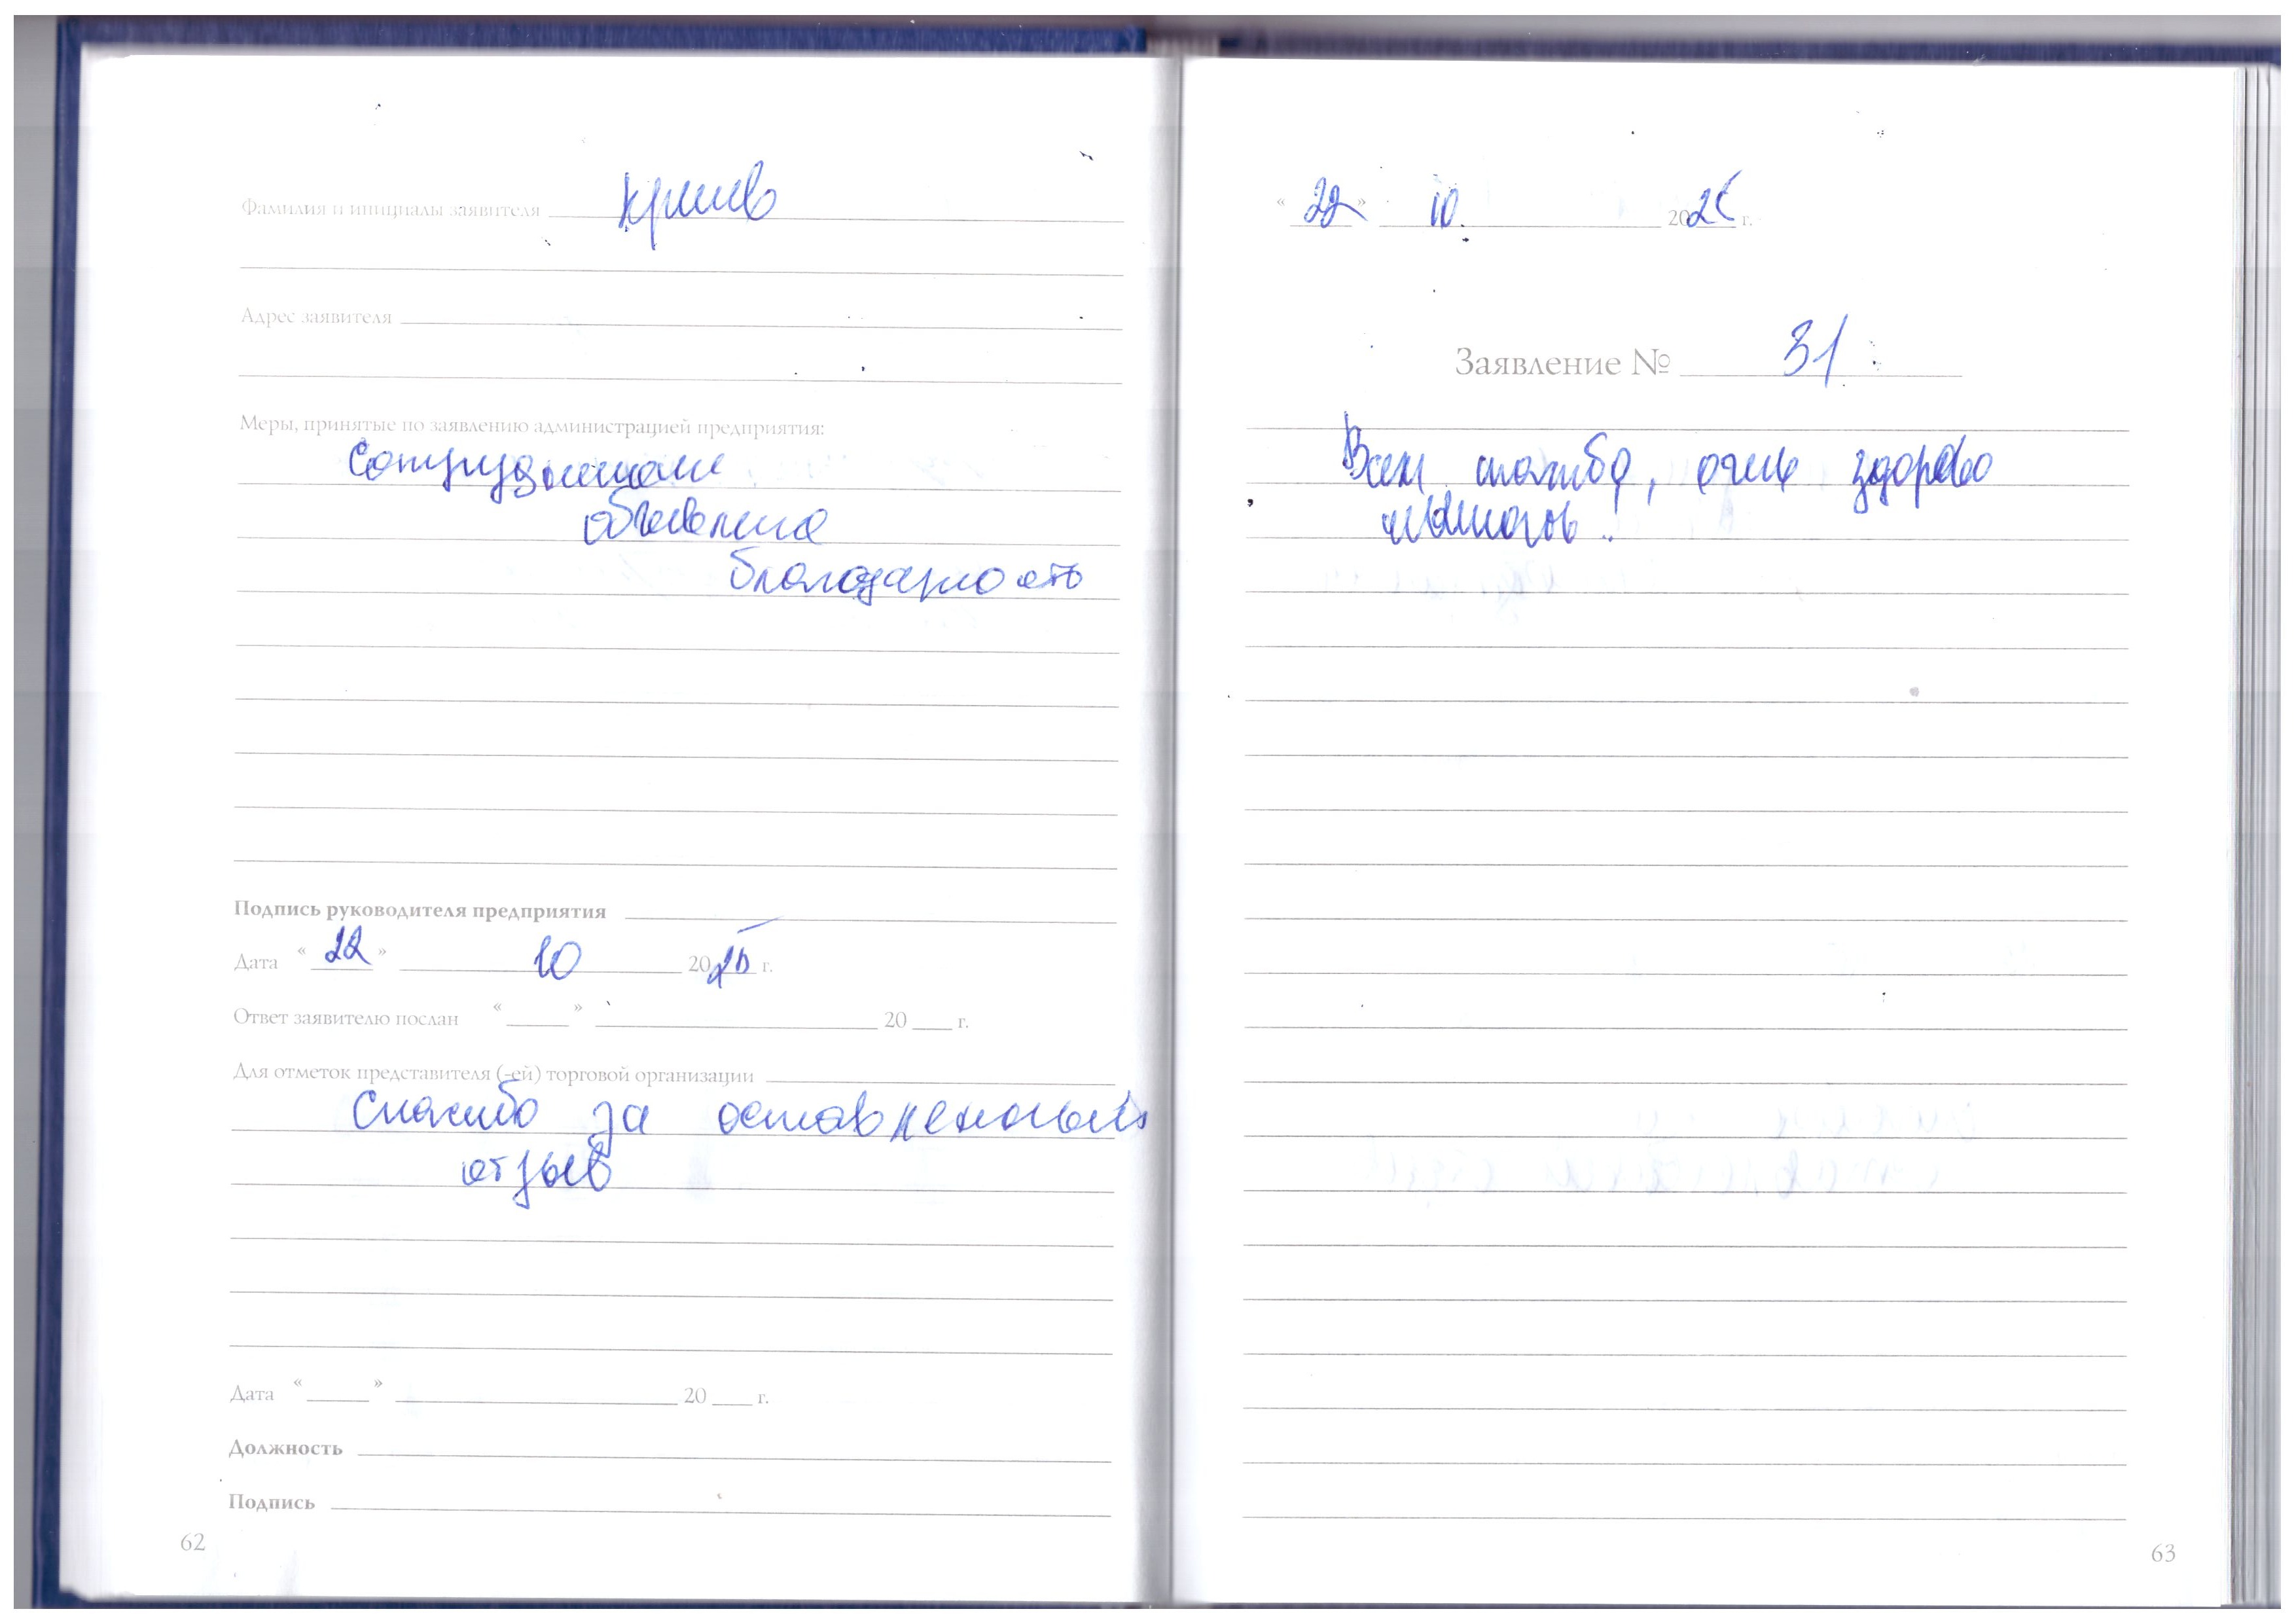 Фамилия и инициалы заявителя
Адрес заявителя
Меры, принятые по заявлению администрацией предприятия:
Сотрудникам
объявлена
благодарность
Подпись руководителя предприятия
Дата « 22 » 10 2025 г.
Ответ заявителю послан « » 20 г.
Для отметок представителя (-ей) торговой организации
Спасибо за оставленный
отзыв
Дата « » 20 г.
Должность
Подпись
62
« 22 » 10. 2025 г.
Заявление № 31
Всем спасибо, очень здорово
63